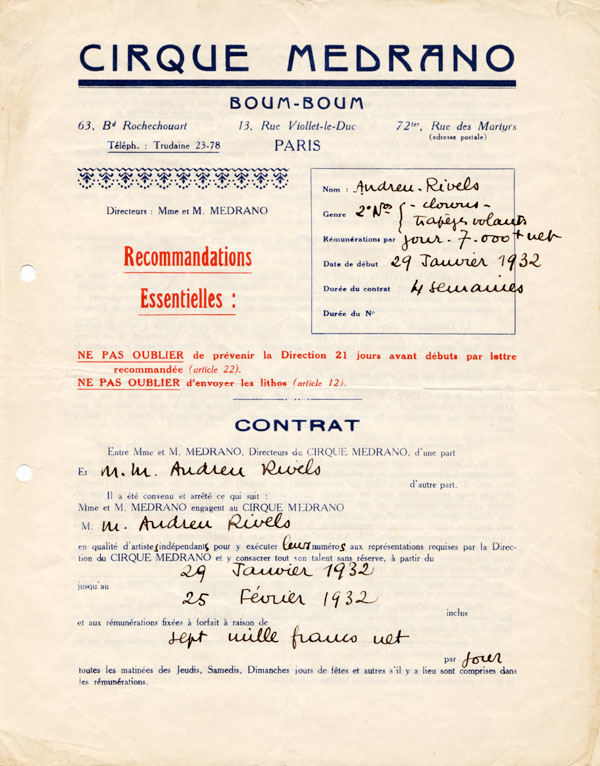 CIRQUE MEDRANO
BOUM-BOUM
63, Bd Rochechouart 13, Rue Viollet-le-Duc 72ter, Rue des Martyrs
(adresse postale)
Téléph. : Trudaine 23-78 PARIS
Directeurs : Mme et M. MEDRANO
Recommandations
Essentielles :
Nom : Andreu-Rivels
Genre 2 Nos { - clowns -
trapèzes volants
Rémunérations par jour - 7.000 + net
Date de début 29 Janvier 1932
Durée du contrat 4 semaines
Durée du No
NE PAS OUBLIER de prévenir la Direction 21 jours avant débuts par lettre
recommandée (article 22).
NE PAS OUBLIER d'envoyer les lithos (article 12).
CONTRAT
Entre Mme et M. MEDRANO, Directeurs du CIRQUE MEDRANO, d'une part
Et M.M. Andreu Rivels
d'autre part.
Il a été convenu et arrêté ce qui suit :
Mme et M. MEDRANO engagent au CIRQUE MEDRANO
M. M. Andreu Rivels
en qualité d'artistes indépendants pour y exécuter leurs numéros aux représentations requises par la Direc-
tion du CIRQUE MEDRANO et y consacrer tout son talent sans réserve, à partir du
29 Janvier 1932
jusqu'au
25 Février 1932
inclus
et aux rémunérations fixées à forfait à raison de
sept mille francs net
par jour
toutes les matinées des Jeudis, Samedis, Dimanches jours de fêtes et autres s'il y a lieu sont comprises dans
les rémunérations.